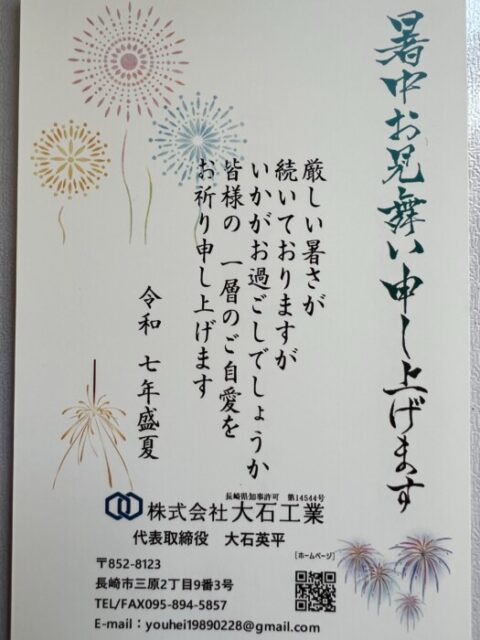 暑中お見舞い申し上げます
厳しい暑さが
続いておりますが
いかがお過ごしでしょうか
皆様の 一層のご自愛を
お祈り申し上げます
令和 七年盛夏
長崎県知事許可 第14544号
株式会社大石工業
代表取締役 大石英平
[ホームページ]
〒852-8123
長崎市三原2丁目9番3号
TEL/FAX095-894-5857
E-mail：youhei19890228@gmail.com